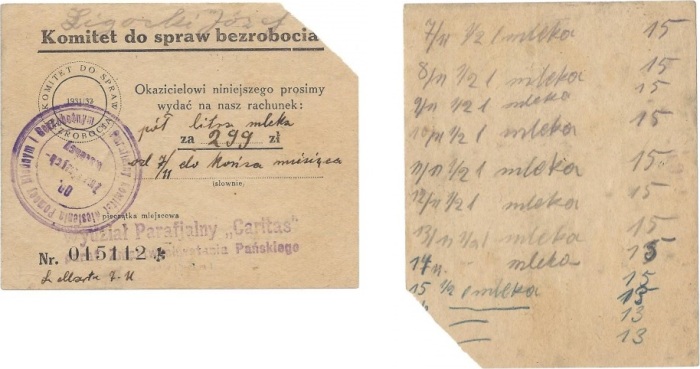 Ligorski Józef
Komitet do spraw bezrobocia
KOMITET DO SPRAW
1931/32
BEZROBOCIA
Okazicielowi niniejszego prosimy
wydać na nasz rachunek:
pół litra mleka
za 299 zł
od 7/11 do końca miesiąca
(słownie.
pieczątka miejscowa
Wydział Parafjalny „Caritas"
Pańskiego
Nr. 015112
7/11 1/2 l mleka 15
8/11 1/2 l mleka 15
9/11 1/2 l mleka 15
10/11 1/2 l mleka 15
11/11 1/2 l mleka 15
12/11 1/2 l 15
13/11 1/2 l mleka 15
14 11. mleka 15
15 1/2 l mleka 15
15
13
13